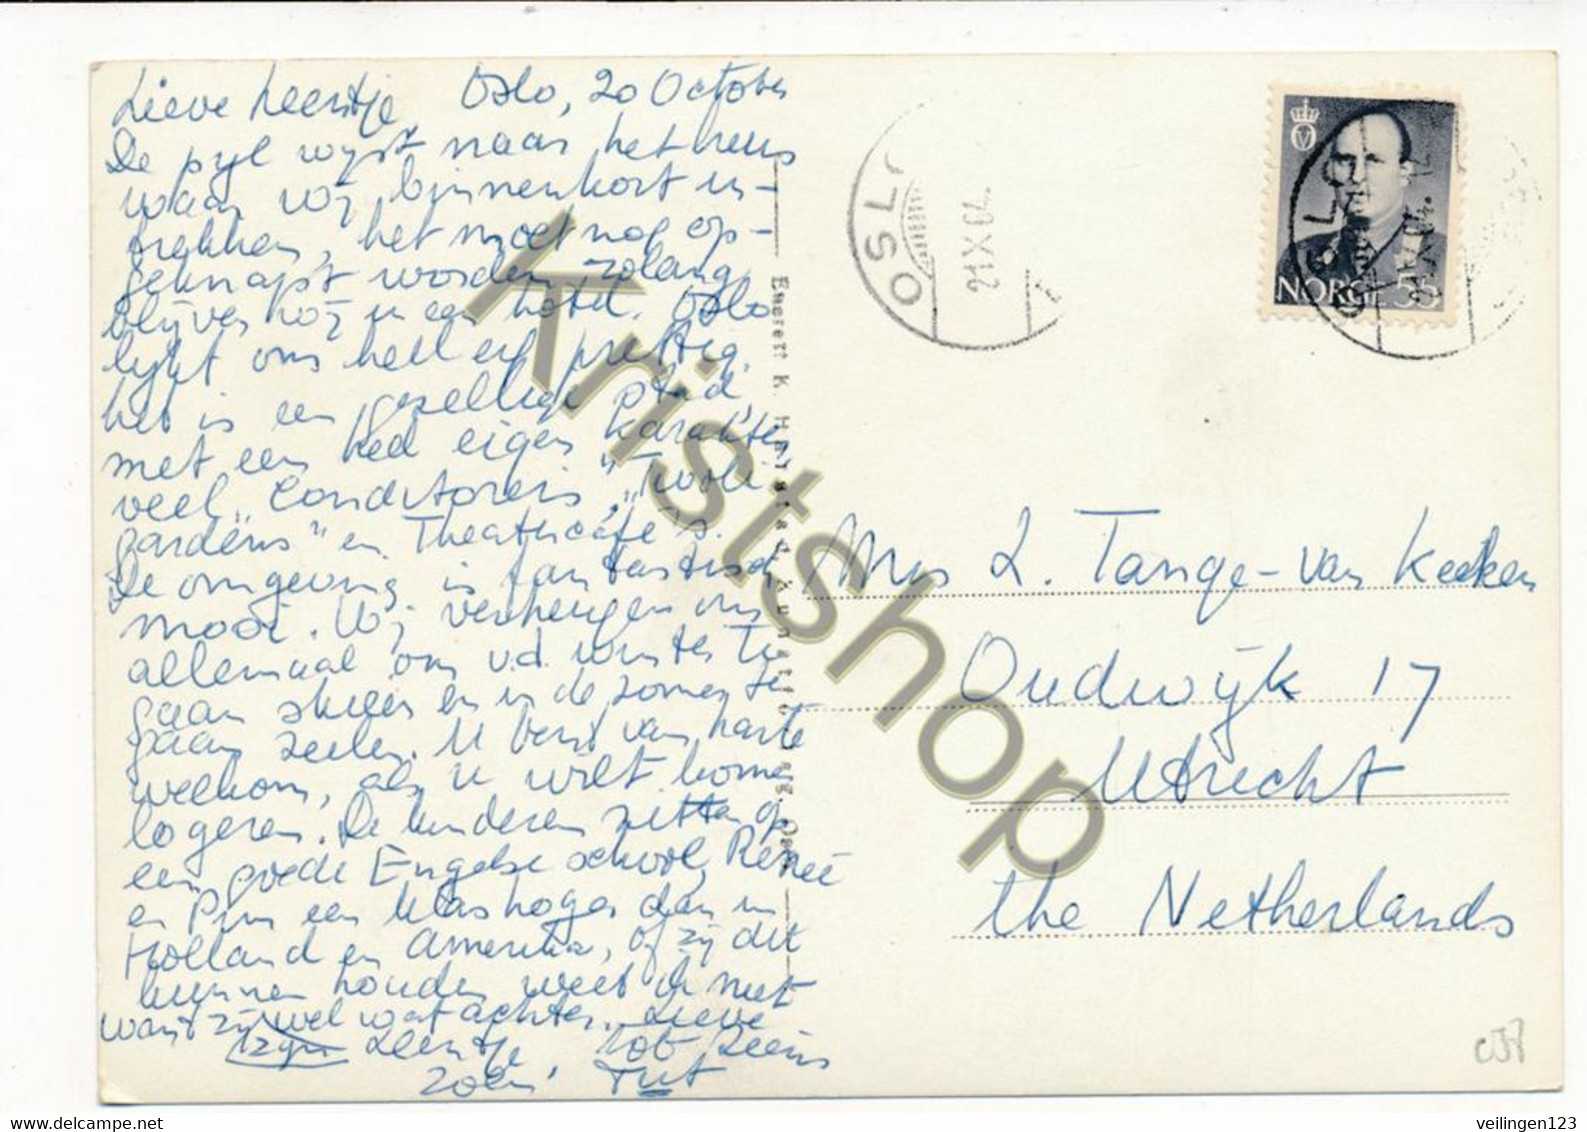 Lieve Leentje, Oslo, 20 October
De pijl wijst naar het huis
waar wij binnenkort in-
trekken, het moet nog op-
geknapt worden zolang
blijven wij in een hotel. Oslo
lijkt ons heel erg prettig,
het is een gezellige stad
met een heel eigen karakter
veel „Conditoreis", „Tivoli
gardens" en Theatercafé's.
De omgeving is fantastisch
mooi. Wij verheugen ons
allemaal om v.d. winter te
gaan skieen en in de zomer te
gaan zeilen. U bent van harte
welkom, als u wilt komen
logeren. De kinderen zitten op
een goede Engelse school, Renée
en Pim een klas hoger dan in
Holland en Amerika, of zij dit
kunnen houden weet ik niet
want zij wel wat achter. Lieve
zijn Leentje, tot ziens
zoen Tut
Mrs L. Tange-van Keeken
Oudwijk 17
Utrecht
the Netherlands
OSLO
21 X 64.
V
NORGE 55
OSLO
Enerett K. Harstad
Kristshop
veilingen123